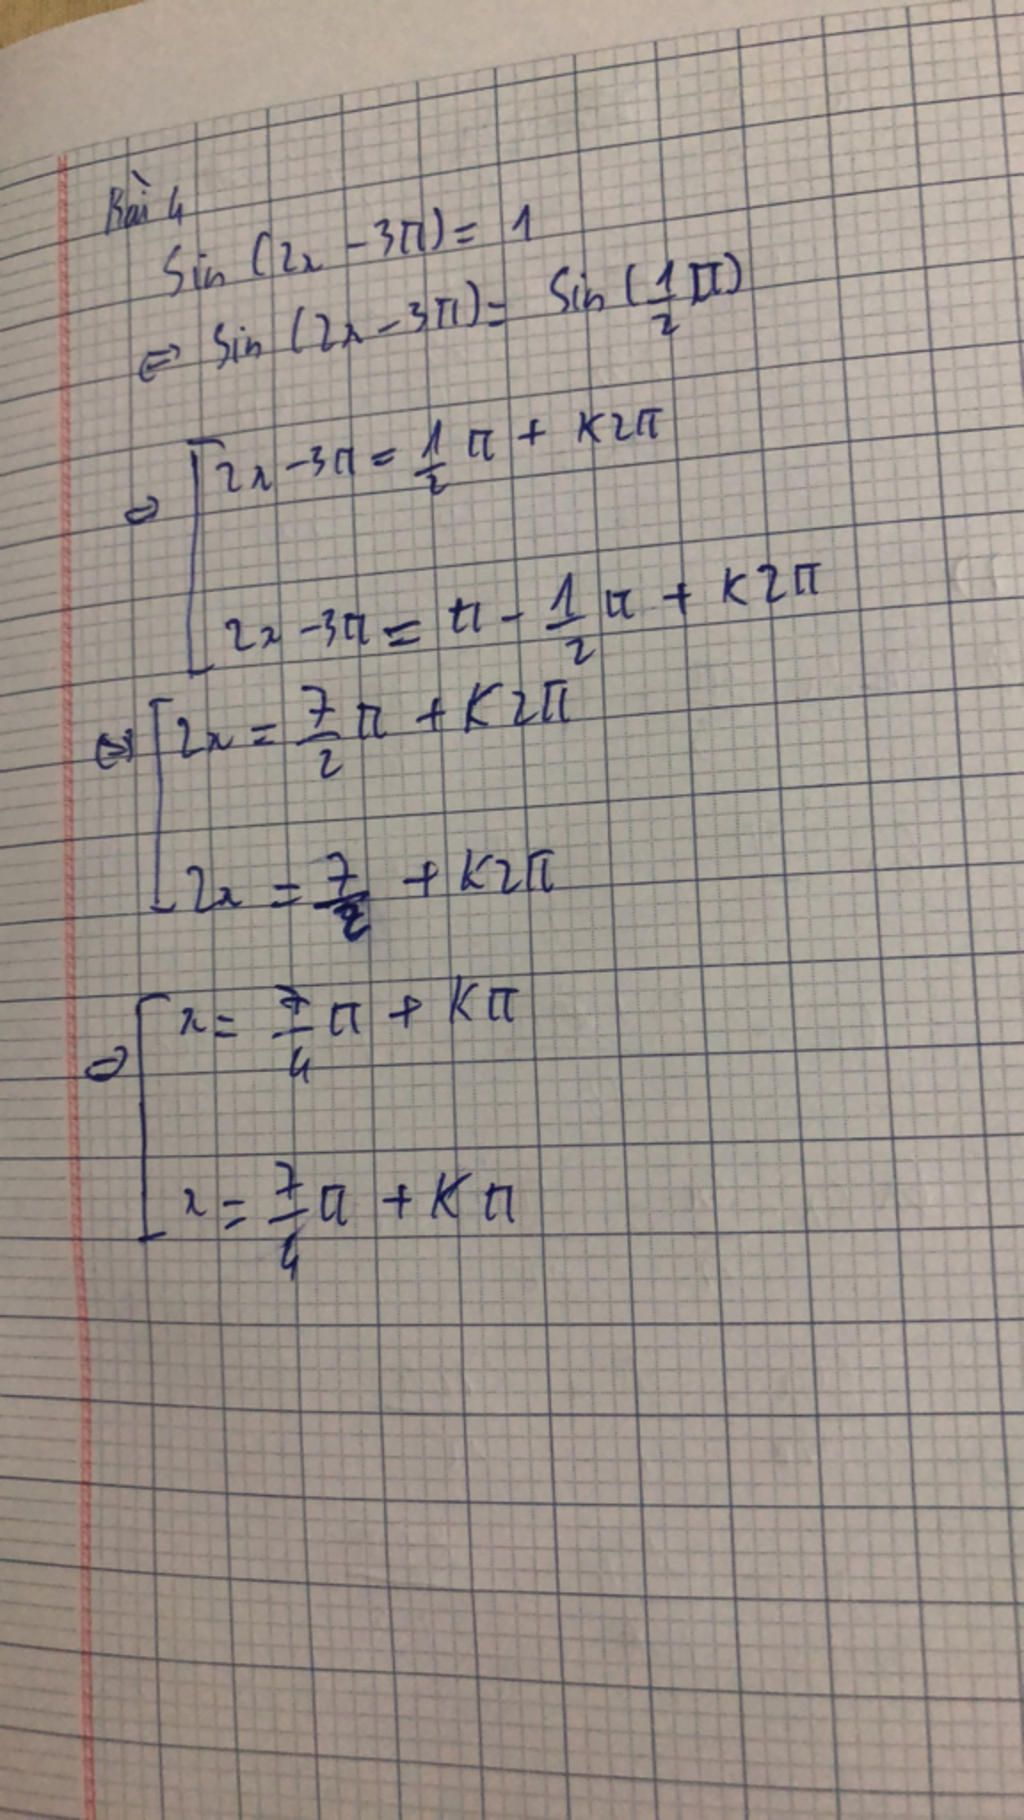 Bài 4
Sin (2x - 3π) = 1
⇔ Sin (2x - 3π) = Sin (1/2 π)
⇔ [ 2x - 3π = 1/2 π + K2π
2x - 3π = π - 1/2 π + K2π
⇔ [ 2x = 7/2 π + K2π
2x = 7/2 + K2π
⇔ [ x = 7/4 π + Kπ
x = 7/4 π + Kπ